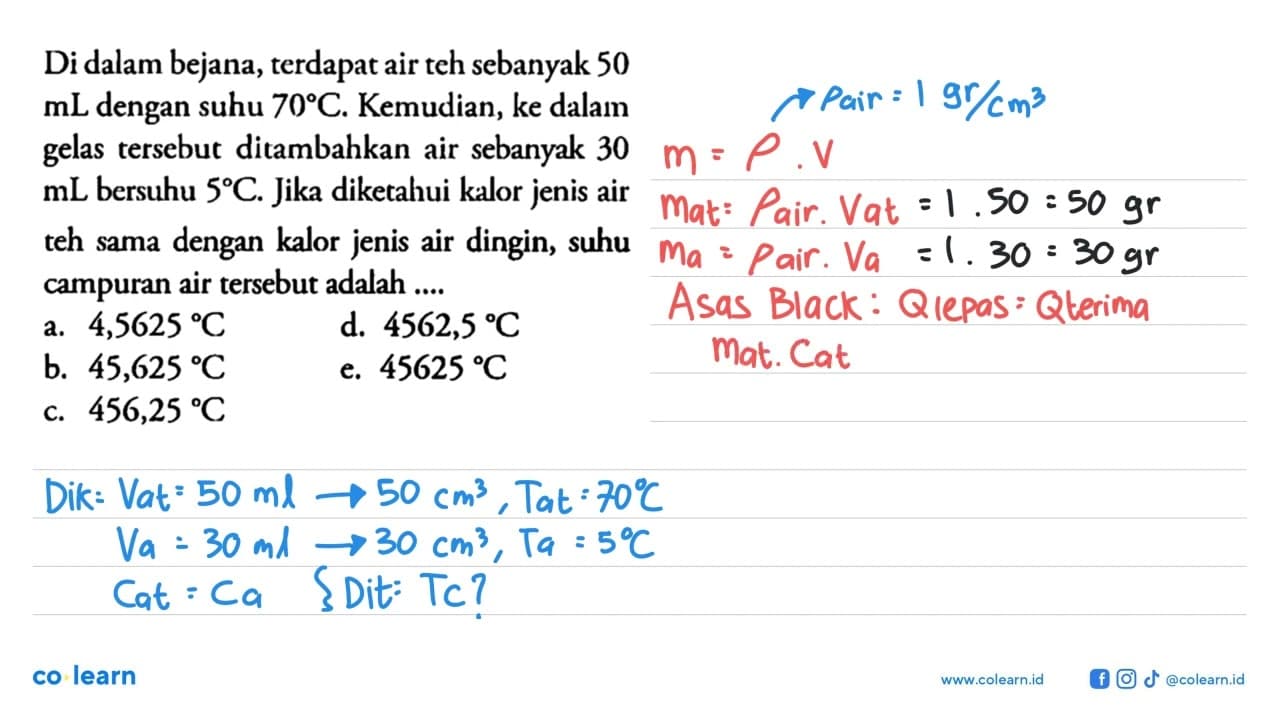 Di dalam bejana, terdapat air teh sebanyak 50
mL dengan suhu 70°C. Kemudian, ke dalam
gelas tersebut ditambahkan air sebanyak 30
mL bersuhu 5°C. Jika diketahui kalor jenis air
teh sama dengan kalor jenis air dingin, suhu
campuran air tersebut adalah ....
a. 4,5625 °C d. 4562,5 °C
b. 45,625 °C e. 45625 °C
c. 456,25 °C
ρair = 1 gr/cm³
m = ρ . V
mat = ρair. Vat = 1 . 50 = 50 gr
ma = ρair. Va = 1. 30 = 30 gr
Asas Black : Qlepas = Qterima
mat. Cat
Dik: Vat = 50 ml → 50 cm³, Tat = 70°C
Va = 30 ml → 30 cm³, Ta = 5°C
Cat = Ca { Dit: Tc?
co learn
www.colearn.id @colearn.id